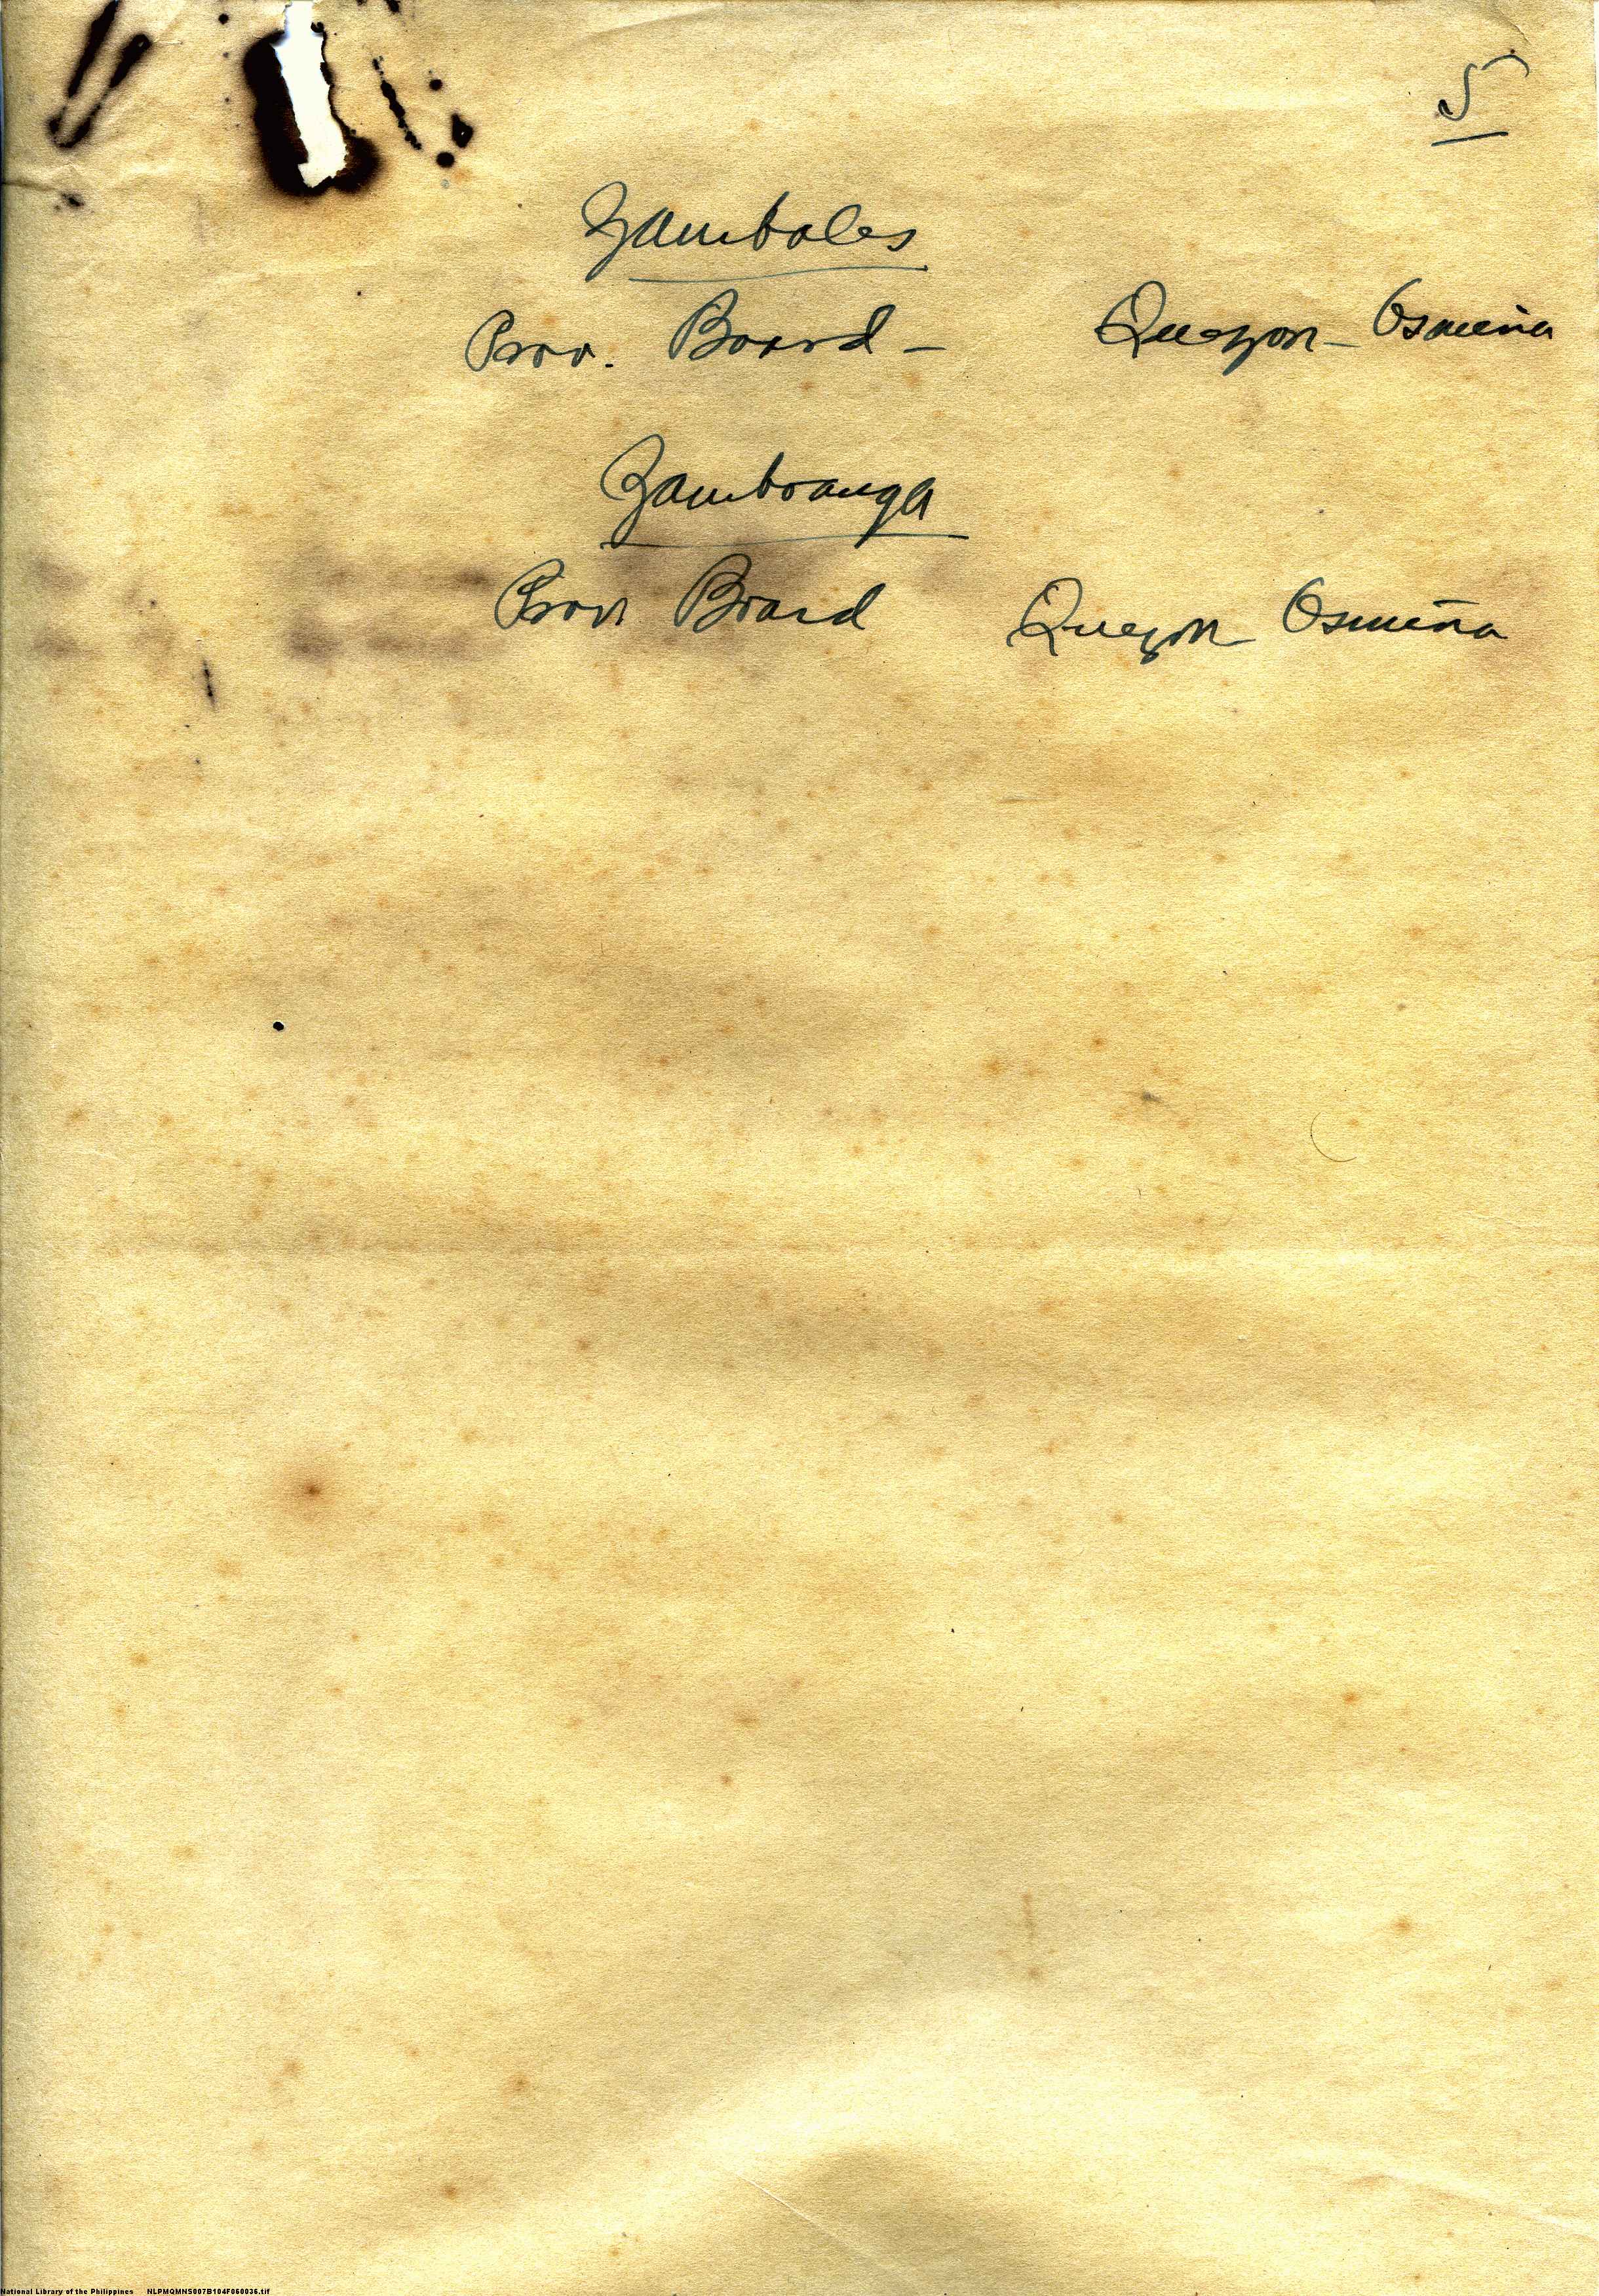 5
Zambales
Prov. Board - Quezon - Osmeña
Zamboanga
Prov Board Quezon - Osmeña
National Library of the Philippines NLPMQMNS007B104F060036.tif